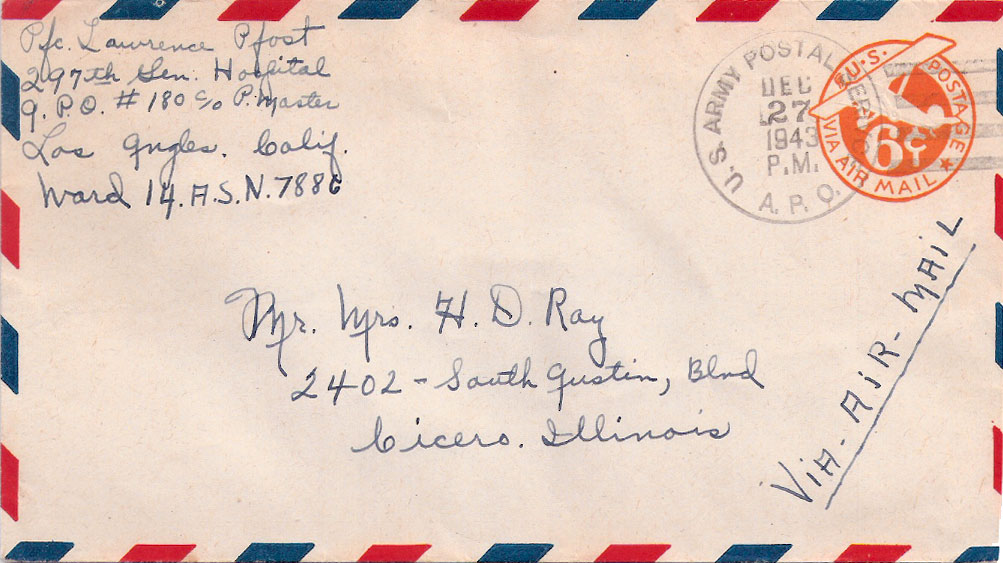 Pfc. Lawrence Pfost
297th Gen. Hospital
A.P.O. # 180 c/o P. Master
Los Angles. Calif.
Ward 14. A.S.N. 7886
U.S. ARMY POSTAL SERVICE
DEC
27
1943
P.M.
A.P.O.
U.S. POSTAGE
6¢
VIA AIR MAIL
Mr. Mrs. H. D. Ray
2402 - South Austin, Blvd
Cicero. Illinois
VIA - AIR - MAIL